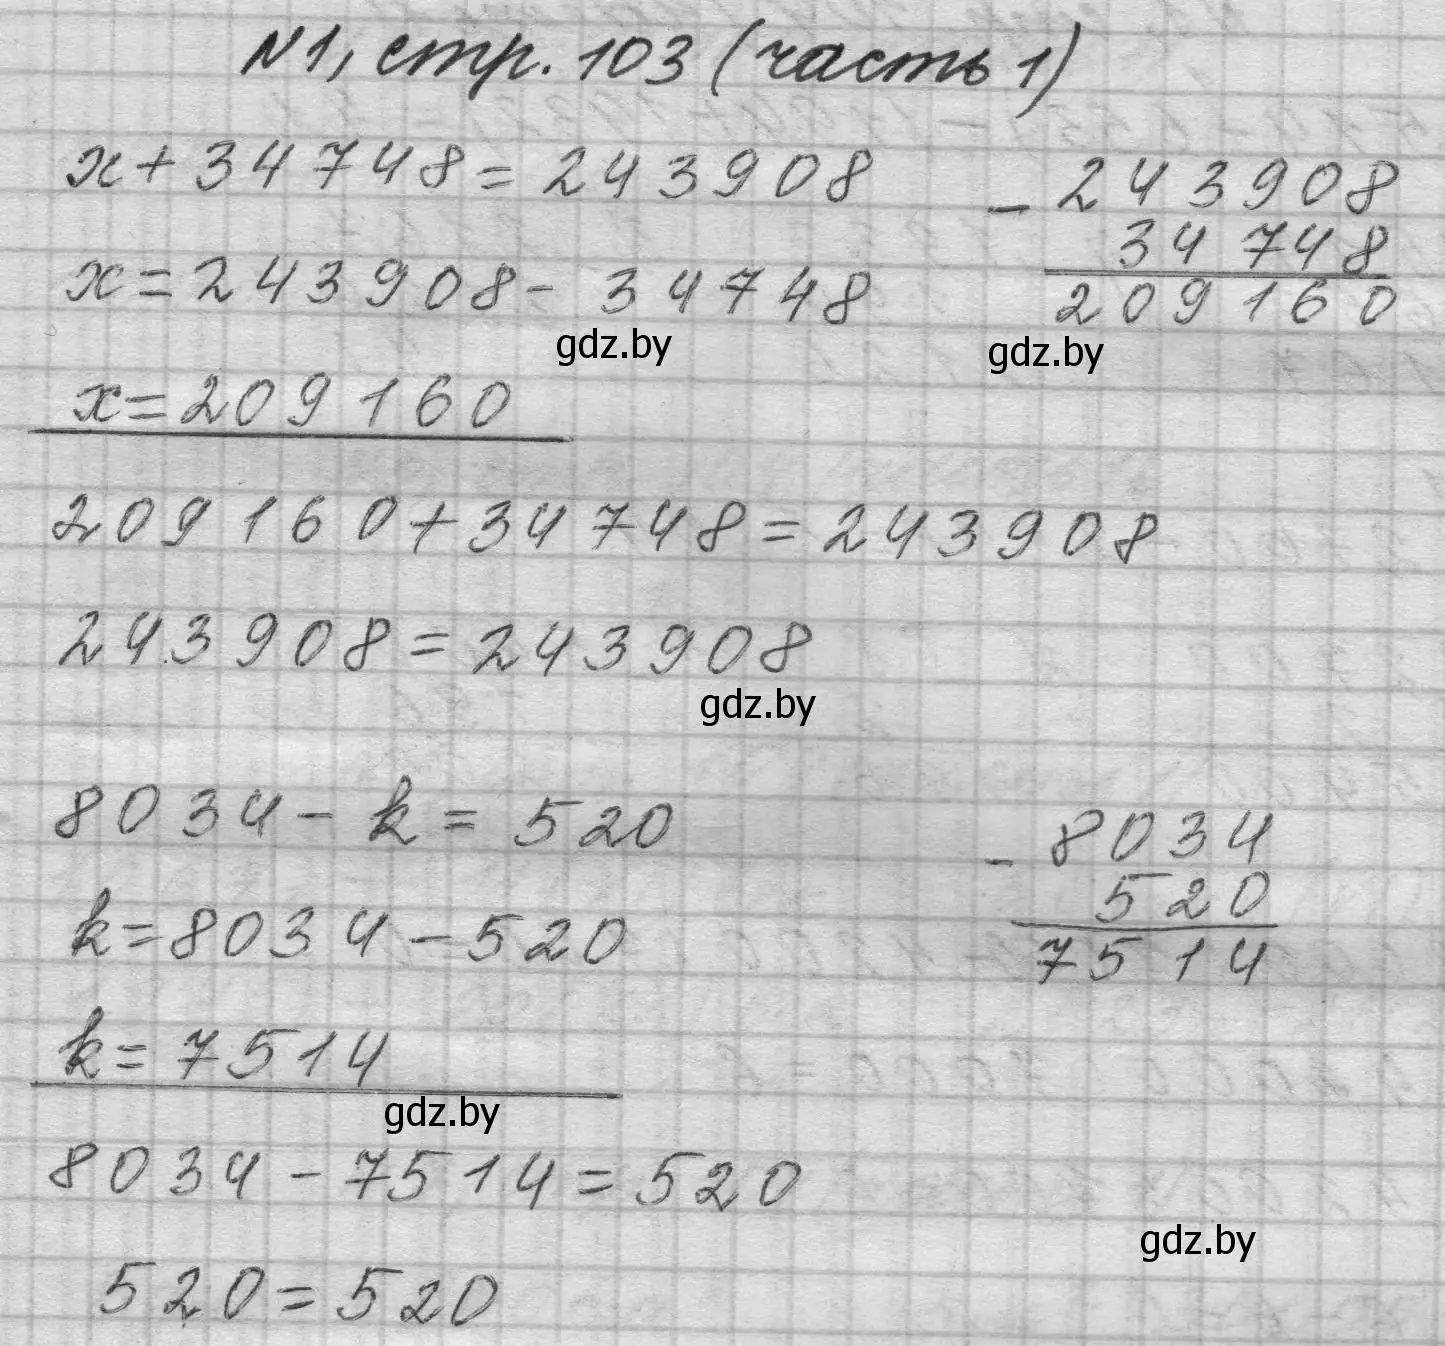 №1, стр. 103 (часть 1)
x + 34748 = 243908
x = 243908 - 34748
gdz.by
x = 209160
209160 + 34748 = 243908
243908 = 243908
gdz.by
- 243908
34748
209160
gdz.by
8034 - k = 520
k = 8034 - 520
k = 7514
gdz.by
8034 - 7514 = 520
520 = 520
- 8034
520
7514
gdz.by